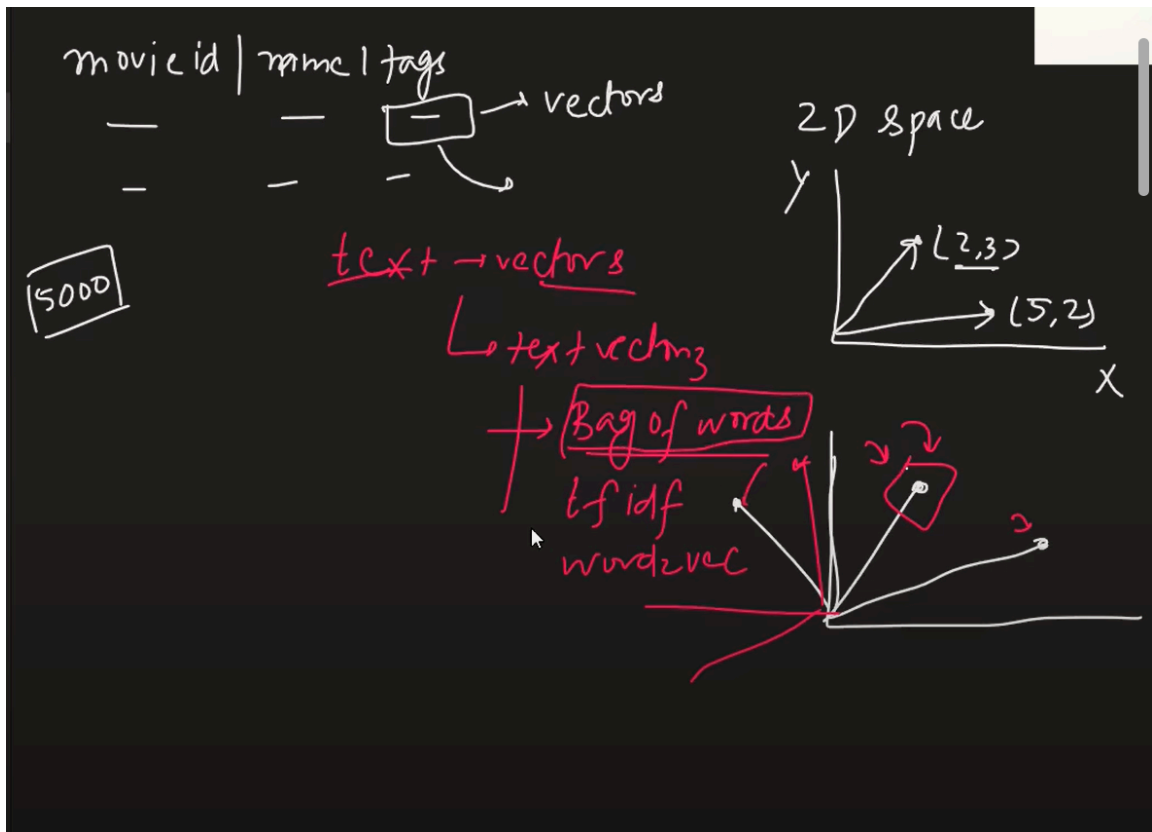 movie id | name | tags
→ vectors
5000
text → vectors
text vectoriz
Bag of words
tf idf
word2vec
2D space
Y
(2,3)
(5,2)
X